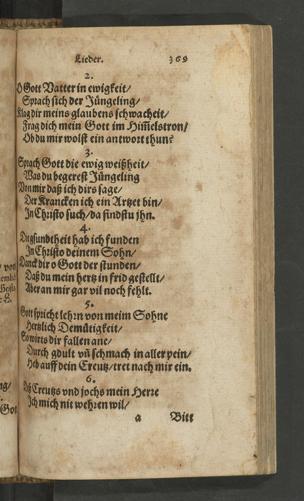 Lieder. 369
2.
O Gott Vatter in ewigkeit/
Sprach sich der Jüngeling/
Klag dir meins glaubens schwacheit/
Frag dich mein Gott im Him̃elstron/
Ob du mir wolst ein antwort thun?
3.
Sprach Gott die ewig weißheit/
Was du begerest Jüngeling
Von mir daß ich dirs sage/
Der Krancken ich ein Artzet bin/
In Christo such/da findstu jhn.
4.
Die gsundtheit hab ich funden
In Christo deinem Sohn/
Danck dir o Gott der stunden/
Daß du mein hertz in frid gestellt/
Aber an mir gar vil noch fehlt.
5.
Gott spricht lehrn von meim Sohne
Hertzlich Demütigkeit/
So wirts dir fallen ane/
Durch gdult vn̄ schmach in aller pein/
Heb auff dein Creutz/tret nach mir ein.
6.
Deß Creutzs vnd jochs mein Herre
Ich mich nit wehren wil/
a Bitt